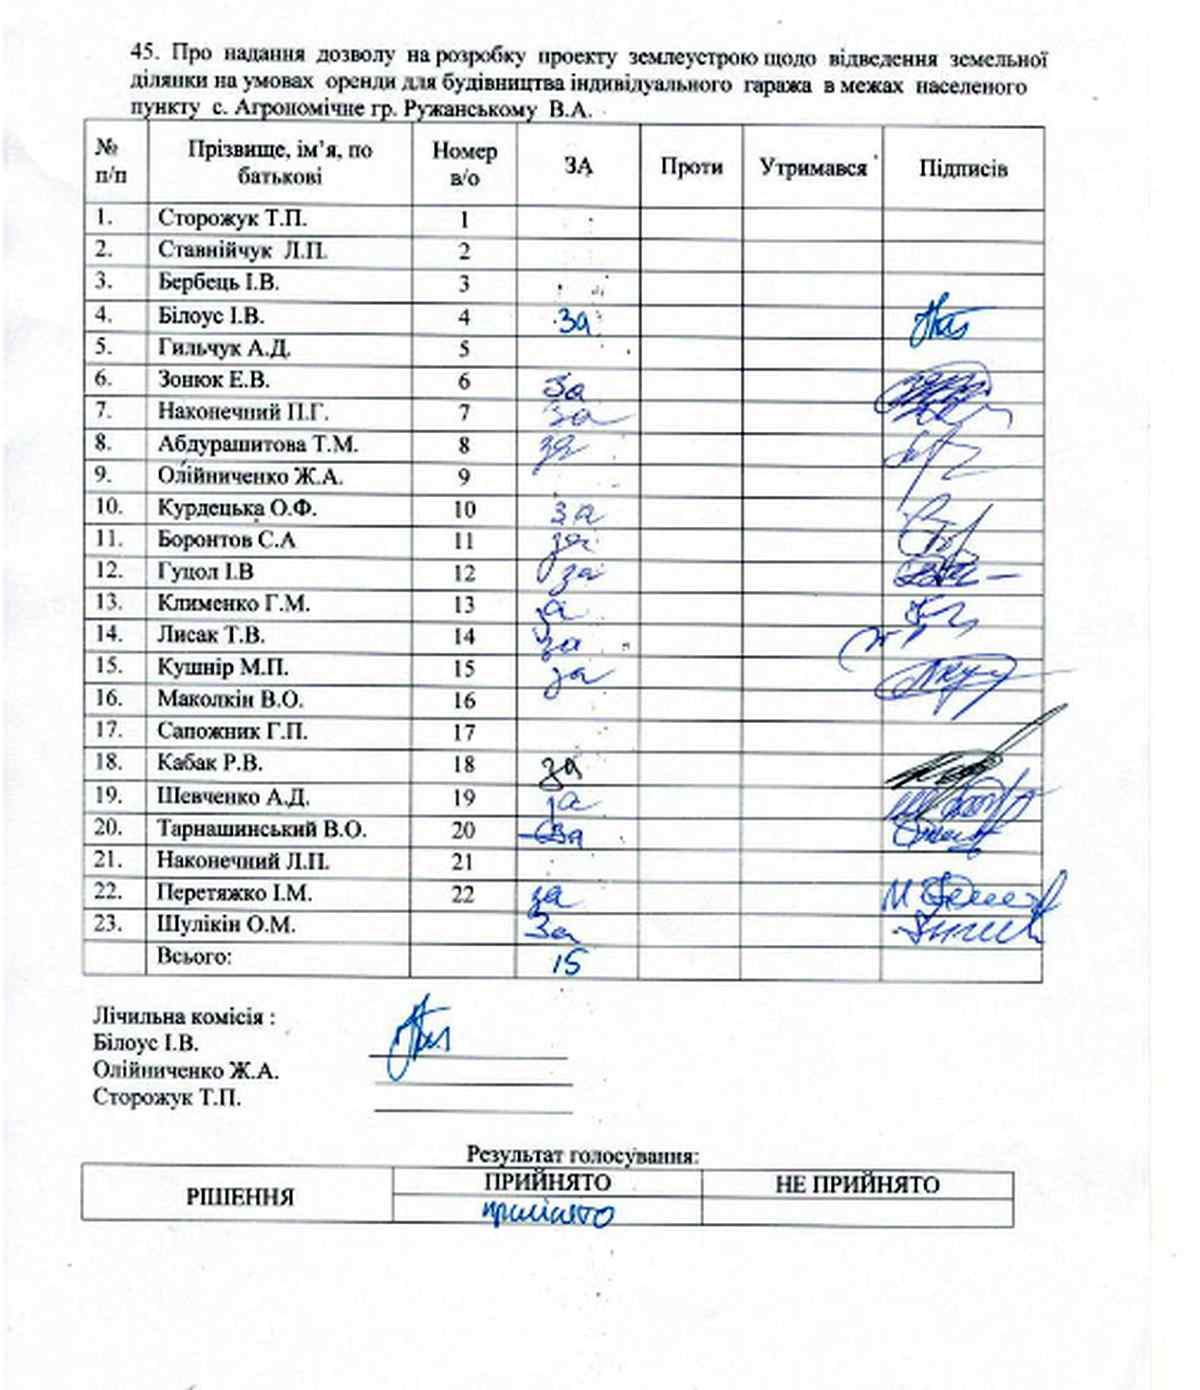 45. Про надання дозволу на розробку проекту землеустрою щодо відведення земельної
ділянки на умовах оренди для будівництва індивідуального гаража в межах населеного
пункту с. Агрономічне гр. Ружанському В.А.
№ п/п Прізвище, ім’я, по батькові Номер в/о ЗА Проти Утримався Підписів
1. Сторожук Т.П. 1
2. Ставнійчук Л.П. 2
3. Бербець І.В. 3
4. Білоус І.В. 4 За
5. Гильчук А.Д. 5
6. Зонюк Е.В. 6 За
7. Наконечний П.Г. 7 За
8. Абдурашитова Т.М. 8 за
9. Олійниченко Ж.А. 9
10. Курдецька О.Ф. 10 за
11. Боронтов С.А 11 за
12. Гуцол І.В 12 за
13. Клименко Г.М. 13 за
14. Лисак Т.В. 14 за
15. Кушнір М.П. 15 за
16. Маколкін В.О. 16
17. Сапожник Г.П. 17
18. Кабак Р.В. 18 за
19. Шевченко А.Д. 19 за
20. Тарнашинський В.О. 20 За
21. Наконечний Л.П. 21
22. Перетяжко І.М. 22 за
23. Шулікін О.М. За
Всього: 15
Лічильна комісія :
Білоус І.В.
Олійниченко Ж.А.
Сторожук Т.П.
Результат голосування:
РІШЕННЯ ПРИЙНЯТО НЕ ПРИЙНЯТО
прийнято